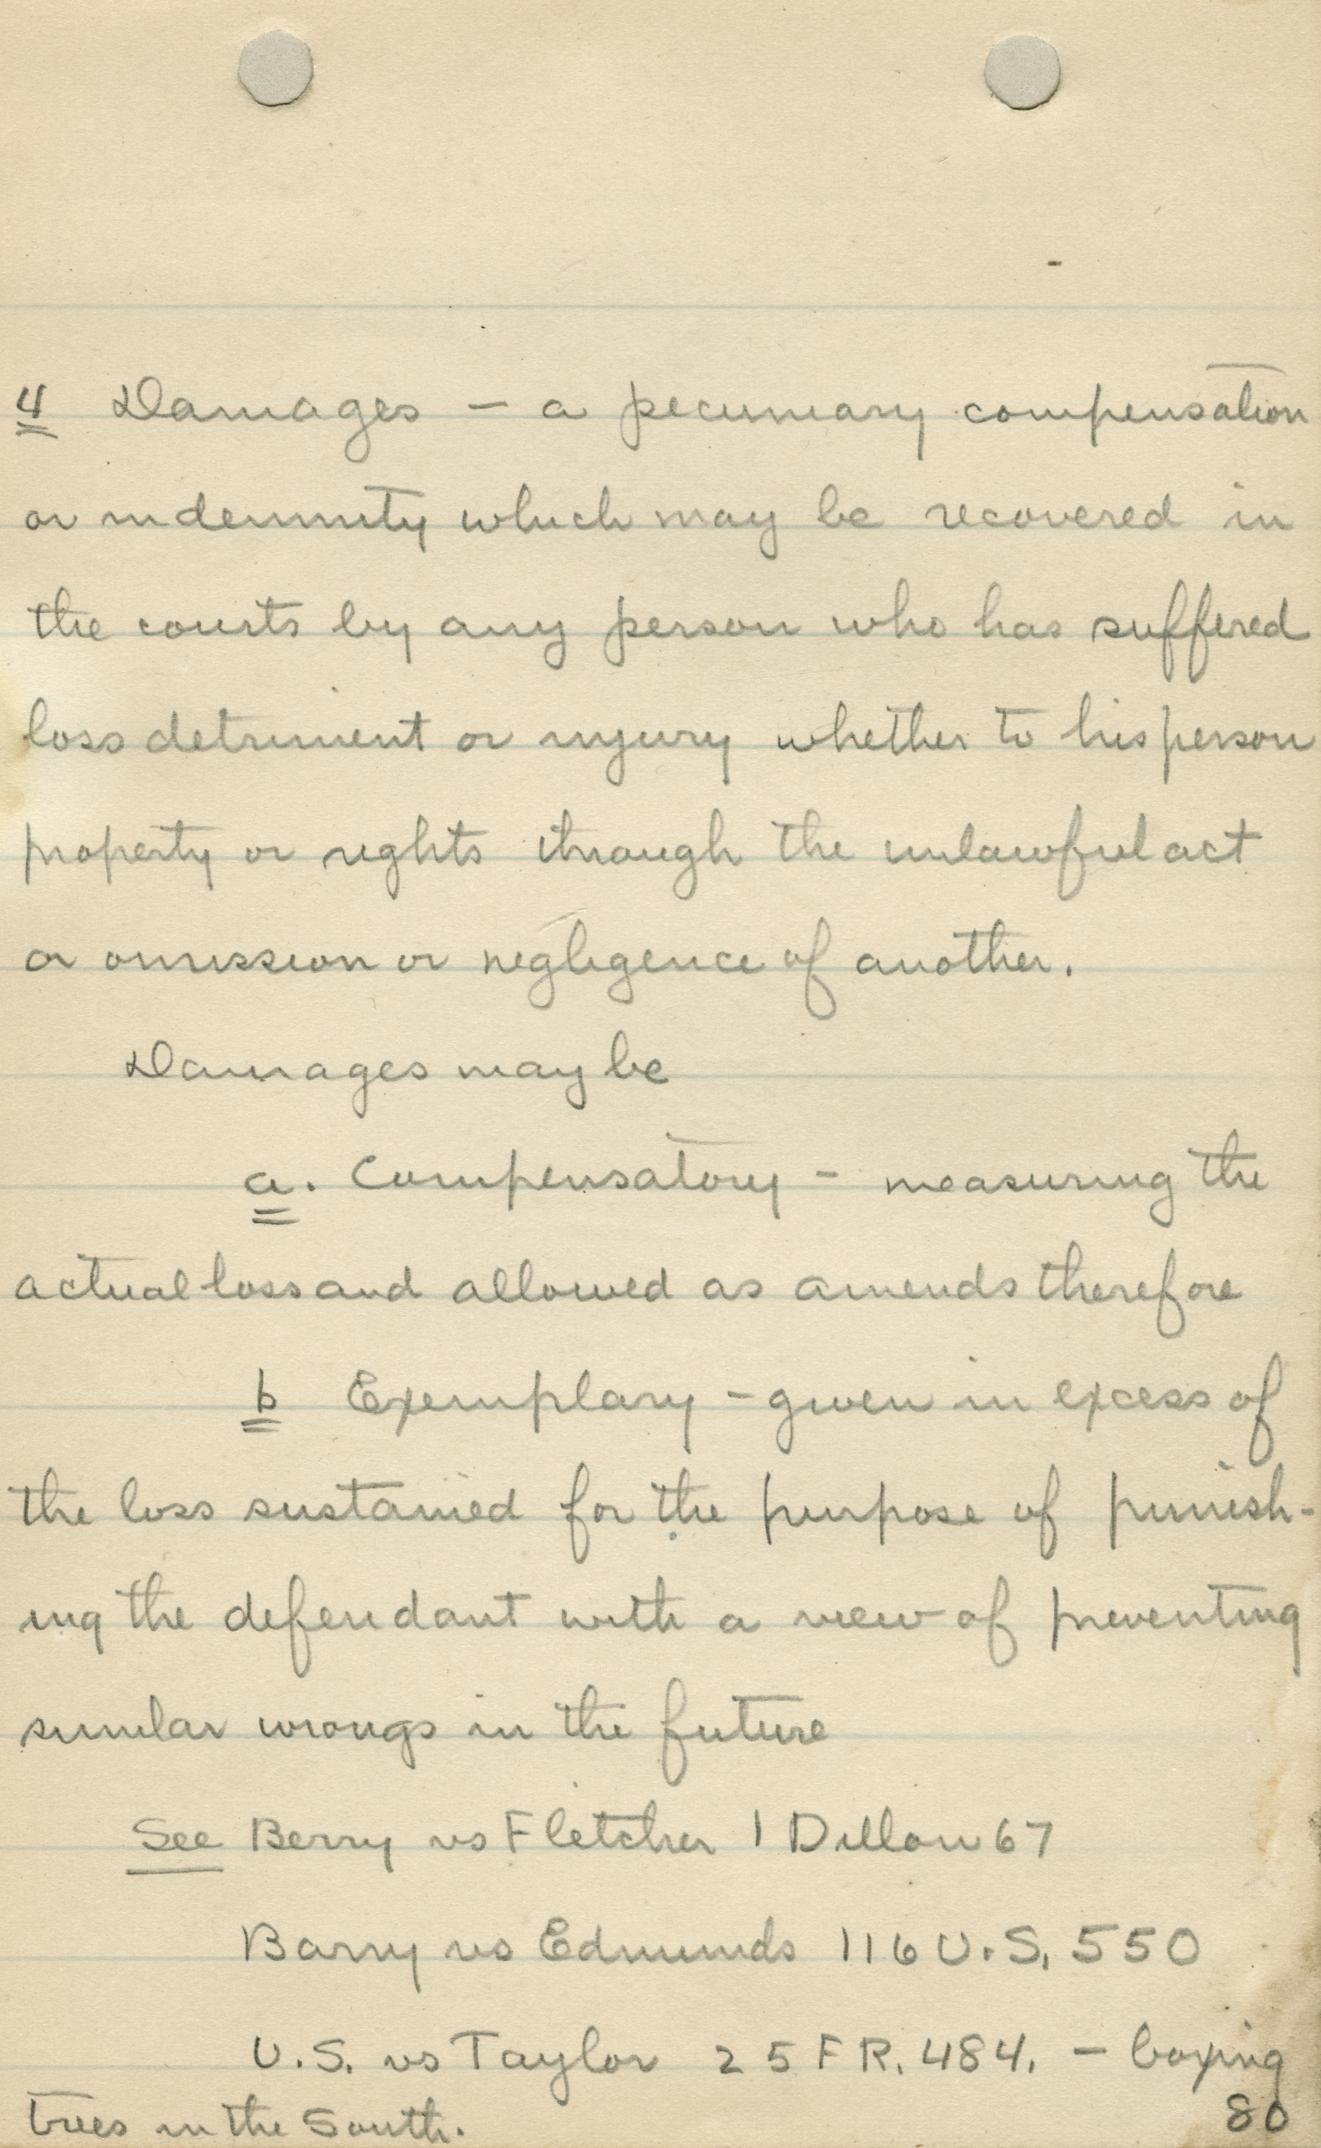 4 Damages - a pecuniary compensation
or indemnity which may be recovered in
the courts by any person who has suffered
loss detriment or injury whether to his person
property or rights through the unlawful act
or omission or negligence of another.
Damages may be
a. Compensatory - measuring the
actual loss and allowed as amends therefore
b Exemplary - given in excess of
the loss sustained for the purpose of punish-
ing the defendant with a view of preventing
similar wrongs in the future
See Berry vs Fletcher 1 Dillon 67
Barry vs Edmunds 116 U.S. 550
U.S. vs Taylor 25 F R. 484. - boxing
trees in the South.
80